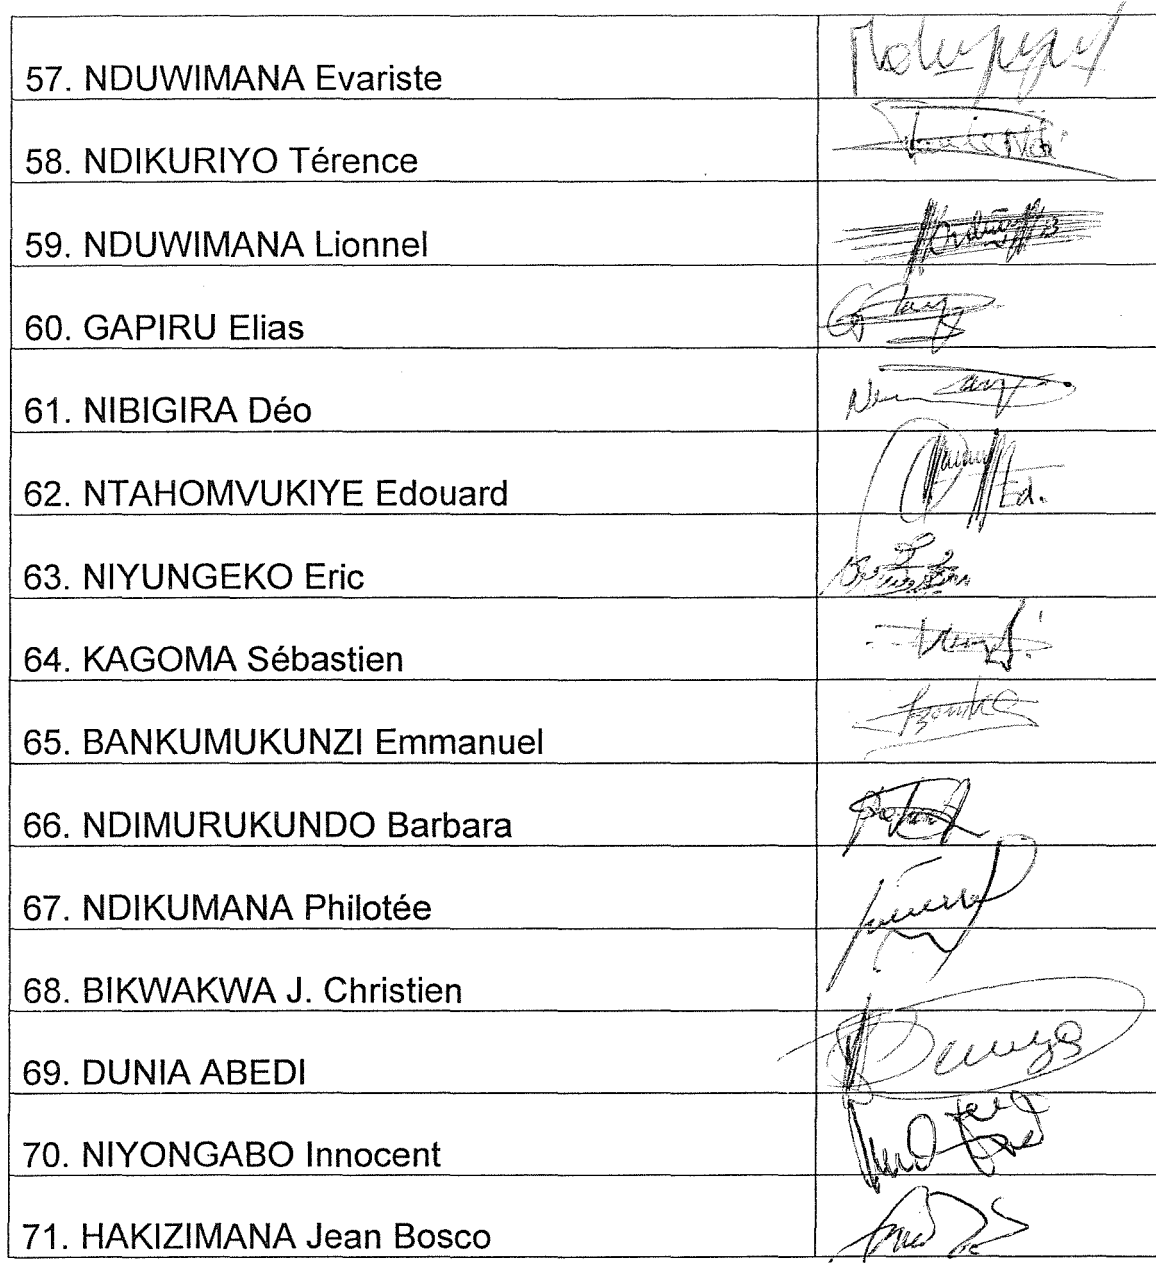 57. NDUWIMANA Evariste
58. NDIKURIYO Térence
59. NDUWIMANA Lionnel
60. GAPIRU Elias
61. NIBIGIRA Déo
62. NTAHOMVUKIYE Edouard
Ed.
63. NIYUNGEKO Eric
64. KAGOMA Sébastien
65. BANKUMUKUNZI Emmanuel
66. NDIMURUKUNDO Barbara
67. NDIKUMANA Philotée
68. BIKWAKWA J. Christien
69. DUNIA ABEDI
70. NIYONGABO Innocent
71. HAKIZIMANA Jean Bosco